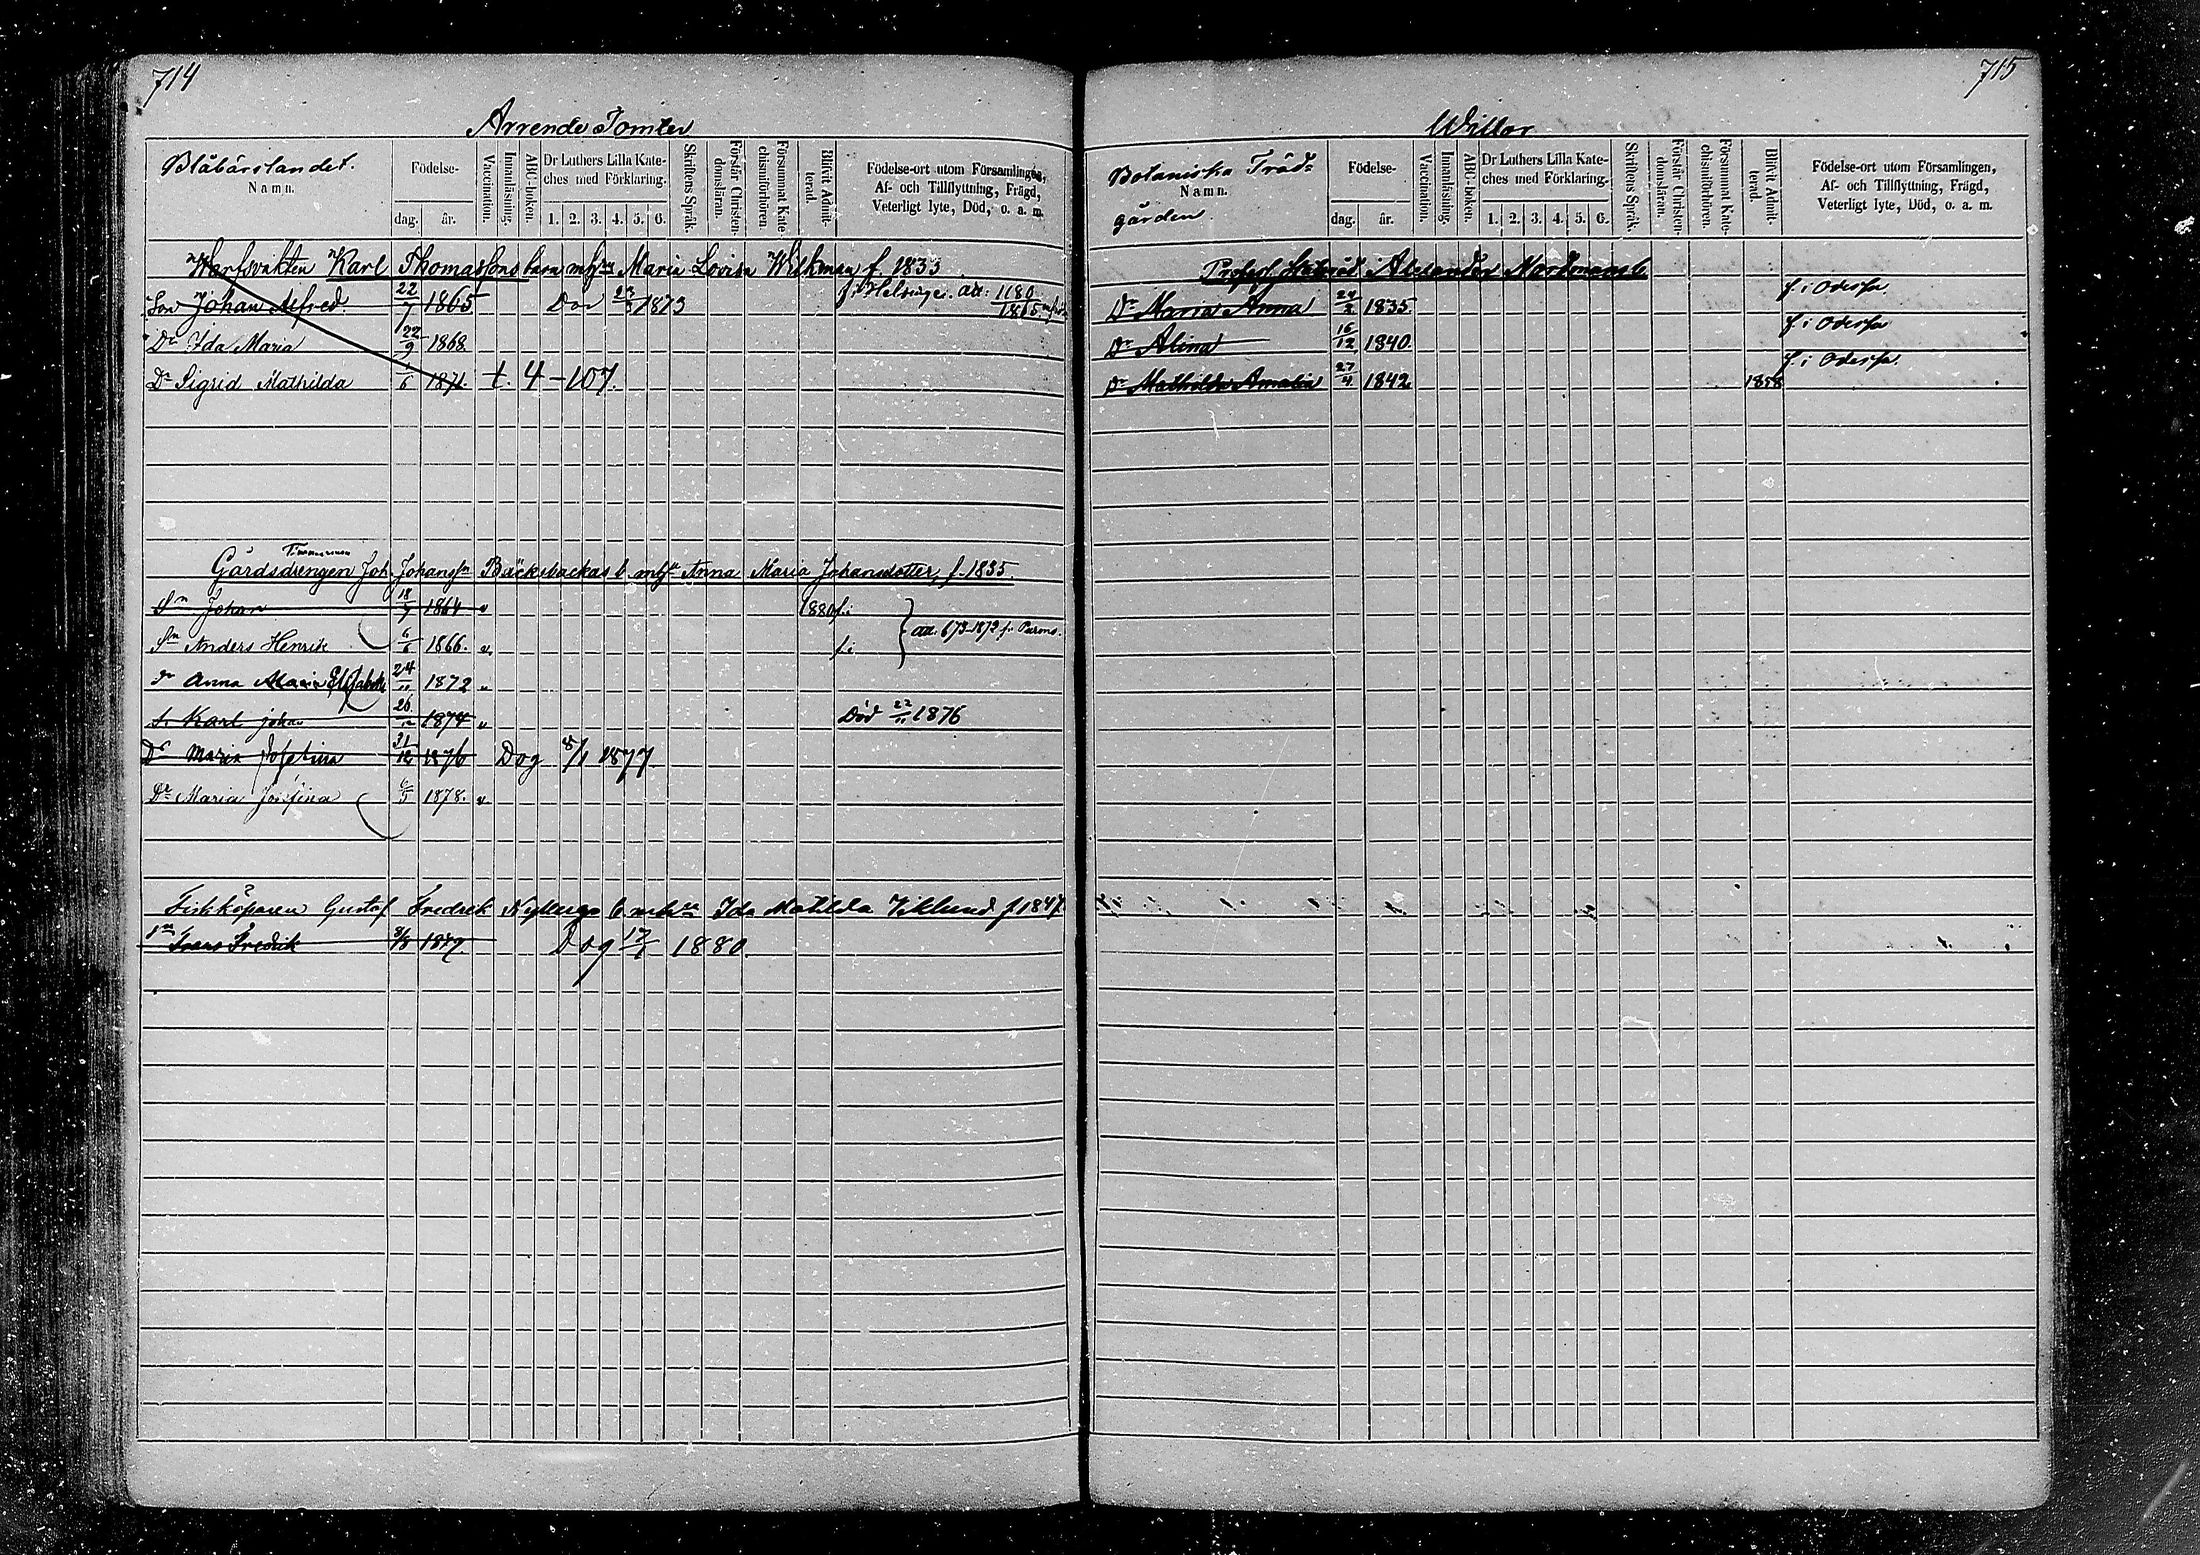 714
Arrende Tomter
Blåbärslandet.
Namn.
Födelse-
dag. år.
Vaccination.
Innanläsning.
ABC-boken.
Dr Luthers Lilla Kate-
ches med Förklaring.
1. 2. 3. 4. 5. 6.
Skriftens Språk.
Förstår Christen-
domsläran.
Försummat Kate-
chismiförhören.
Blifvit Admit-
terad.
Födelse-ort utom Församlingen,
Af- och Tillflyttning, Frägd,
Veterligt lyte, Död, o. a. m.
Warfsvakten Karl Thomassons barn m hu Maria Lovisa Wilkman f. 1833
Son Johan Alfred. 22/7 1865 Död 23/3 1873 f. i Helsinge. att: 1180/1865
Dr Ida Maria 22/9 1868
Dr Sigrid Mathilda 1/6 1871. t. 4-107.
Timmerman
Gårdsdrengen Joh. Johanssn Bäcksbackas b. m hu Anna Maria Johansdotter, f. 1835.
Sn Johan 18/9 1864 v 1880 f. i
Sn Anders Henrik 6/6 1866. v. f. i att. 673-1873 fr.
Dr Anna Maria Elisabeth 24/11 1872 v
S. Karl Johan 26/12 1874 v Död 22/11 1876
Dr Maria Josefina 31/12 1876 Dog 5/1 1877
Dr Maria Josefina 6/5 1878. v
Fiskköparen Gustaf Fredrik Nybergs b m hu Ida Matilda Viklund f 1847
Sn Frans Fredrik 8/8 1879 Dog 17/1 1880.
715
Willor
Botaniska Träd-
gården
Namn.
Födelse-
dag. år.
Vaccination.
Innanläsning.
ABC-boken.
Dr Luthers Lilla Kate-
ches med Förklaring.
1. 2. 3. 4. 5. 6.
Skriftens Språk.
Förstår Christen-
domsläran.
Försummat Kate-
chismiförhören.
Blifvit Admit-
terad.
Födelse-ort utom Församlingen,
Af- och Tillflyttning, Frägd,
Veterligt lyte, Död, o. a. m.
Profess. Statsråd Alexander Nordmanns b
Dr Maria Anna 24/2 1835 f. i Odessa.
Dr Alina 16/12 1840 f. i Odessa
Dr Mathilda Amalia 27/4 1842 1858 f. i Odessa.